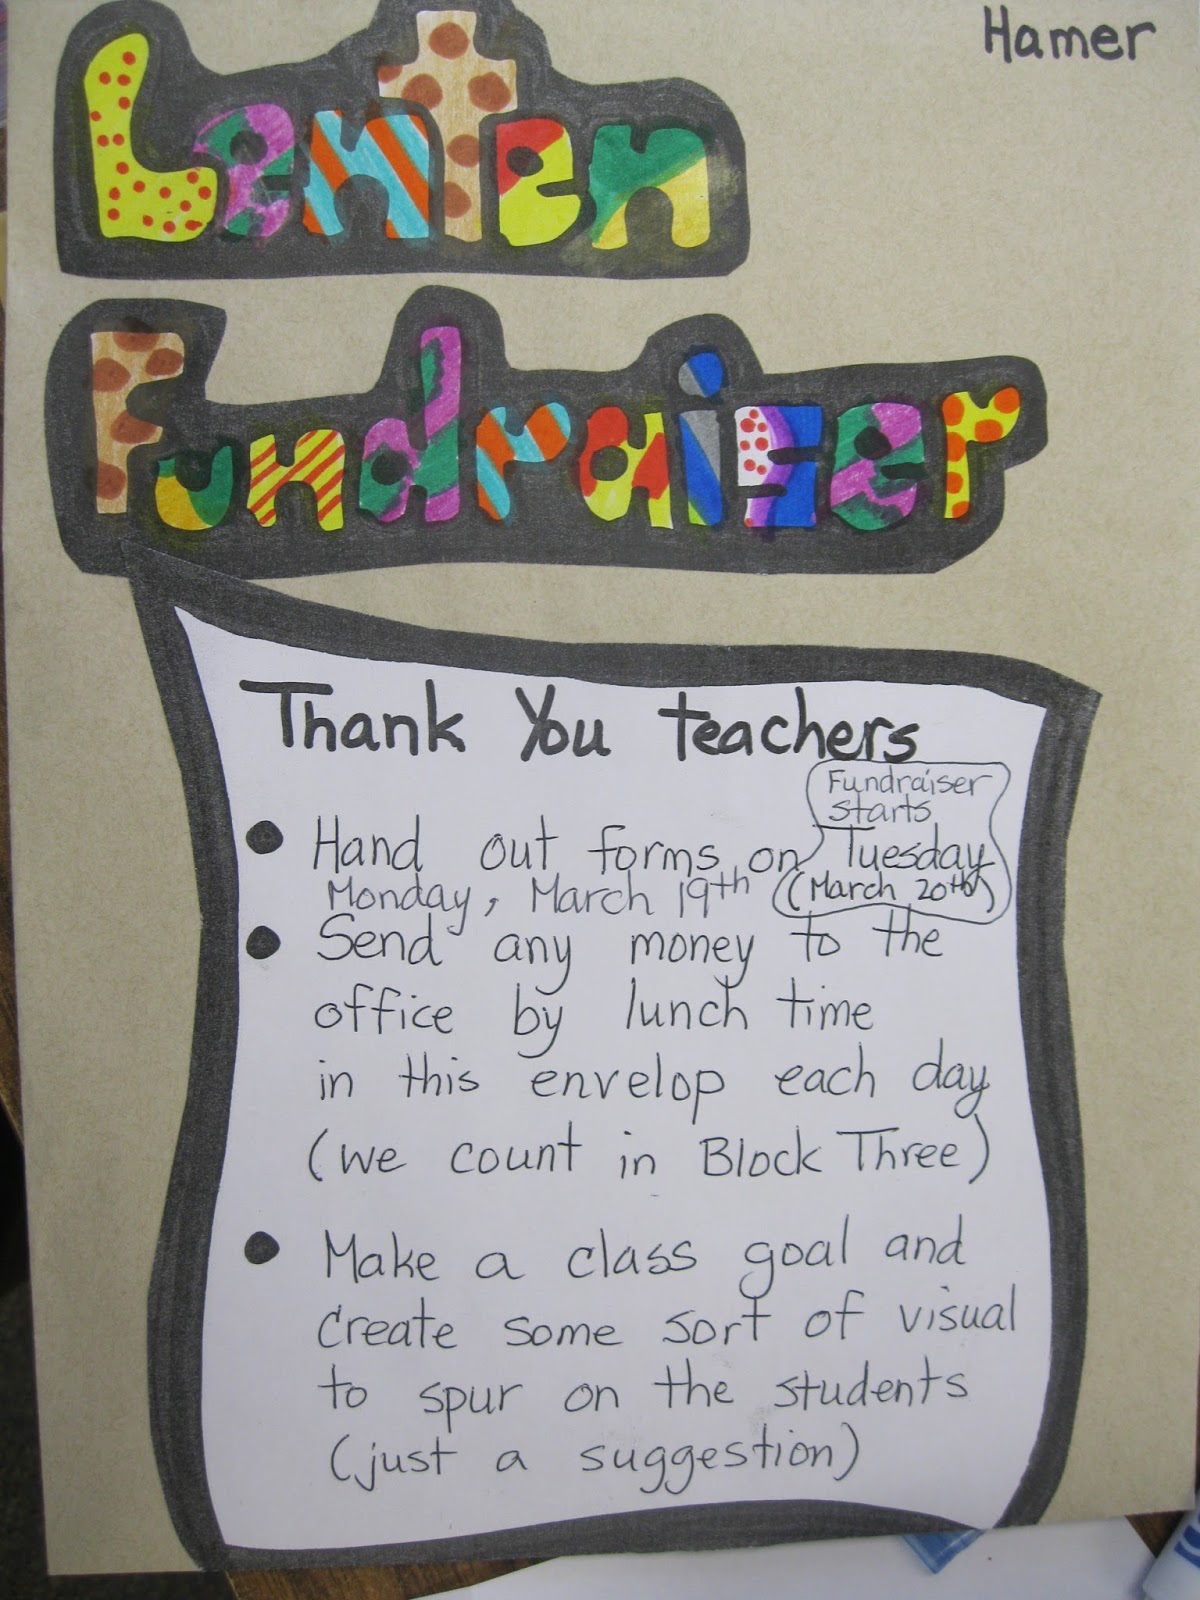 Hamer
Lenten
Fundraiser
Thank You teachers
Fundraiser
starts
Tuesday
(March 20th)
• Hand out forms on
Monday, March 19th
• Send any money to the
office by lunch time
in this envelop each day
(we count in Block Three)
• Make a class goal and
create some sort of visual
to spur on the students
(just a suggestion)